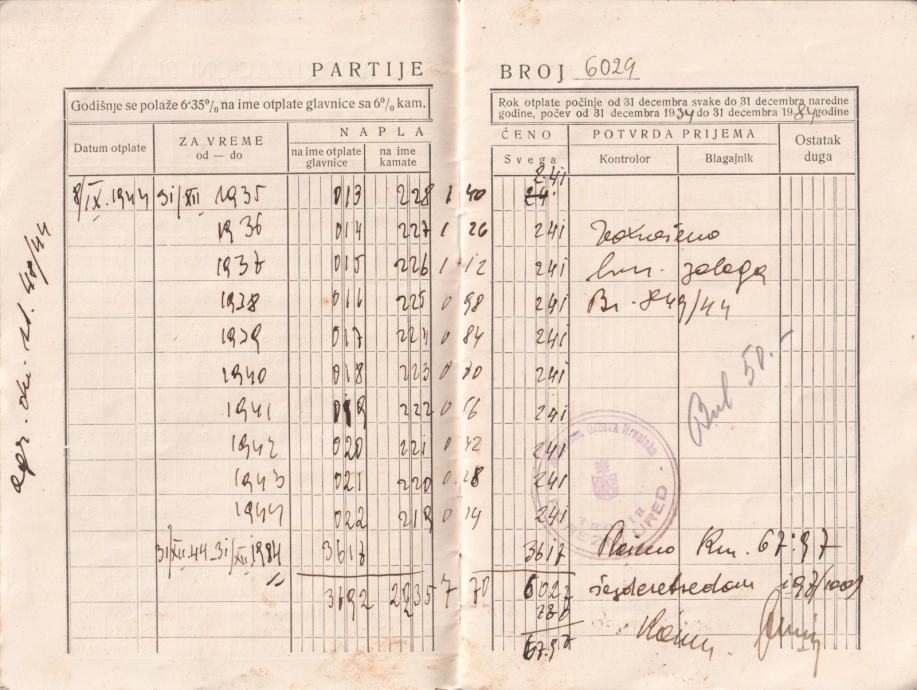 PARTIJE
BROJ 6029
Godišnje se polaže 6·35% na ime otplate glavnice sa 6% kam.
Rok otplate počinje od 31 decembra svake do 31 decembra naredne
godine, počev od 31 decembra 1934 do 31 decembra 1984 godine
Datum otplate
ZA VREME
od — do
NAPLA
na ime otplate glavnice
na ime kamate
ĆENO
Svega
POTVRDA PRIJEMA
Kontrolor
Blagajnik
Ostatak duga
241
8/IX. 1944 31/XII 1935 013 228 1 40 24
1936 014 227 1 26 241
1937 015 226 1 12 241 zaloga
1938 016 225 0 98 241 Br. 849/44
1939 017 224 0 84 241
1940 018 223 0 70 241
1941 019 222 0 56 241
1942 020 221 0 42 241
1943 021 220 0.28 241
1944 022 219 0 14 241
31/XII.44-31/XII.1984 3617 3617 Kn. 67:97
3792 2235 7 70 6027 šezdesetsedam i 97/100
770
67.97
50.-
Država Hrvatska
URED